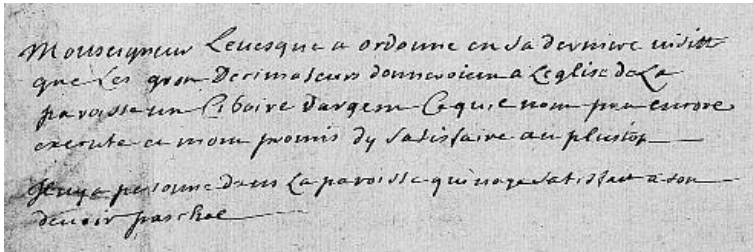 Monseigneur Levesque a ordonne en sa derniere visitte
que Les gros Decimateurs donneroient a Leglise de La
paroisse un Ciboire dargent Ce quils nont pas encore
execute et mont promis dy satisfaire au plustost
Il ny a personne dans La paroisse qui naye satisfait a son
devoir paschal